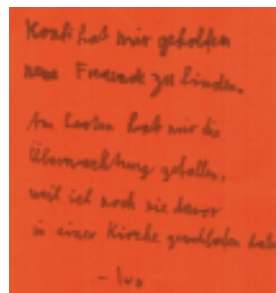 Konfi hat mir geholfen
neue Freunde zu finden.
Am besten hat mir die
Übernachtung gefallen,
weil ich noch nie davor
in einer Kirche geschlafen habe
- Ivo